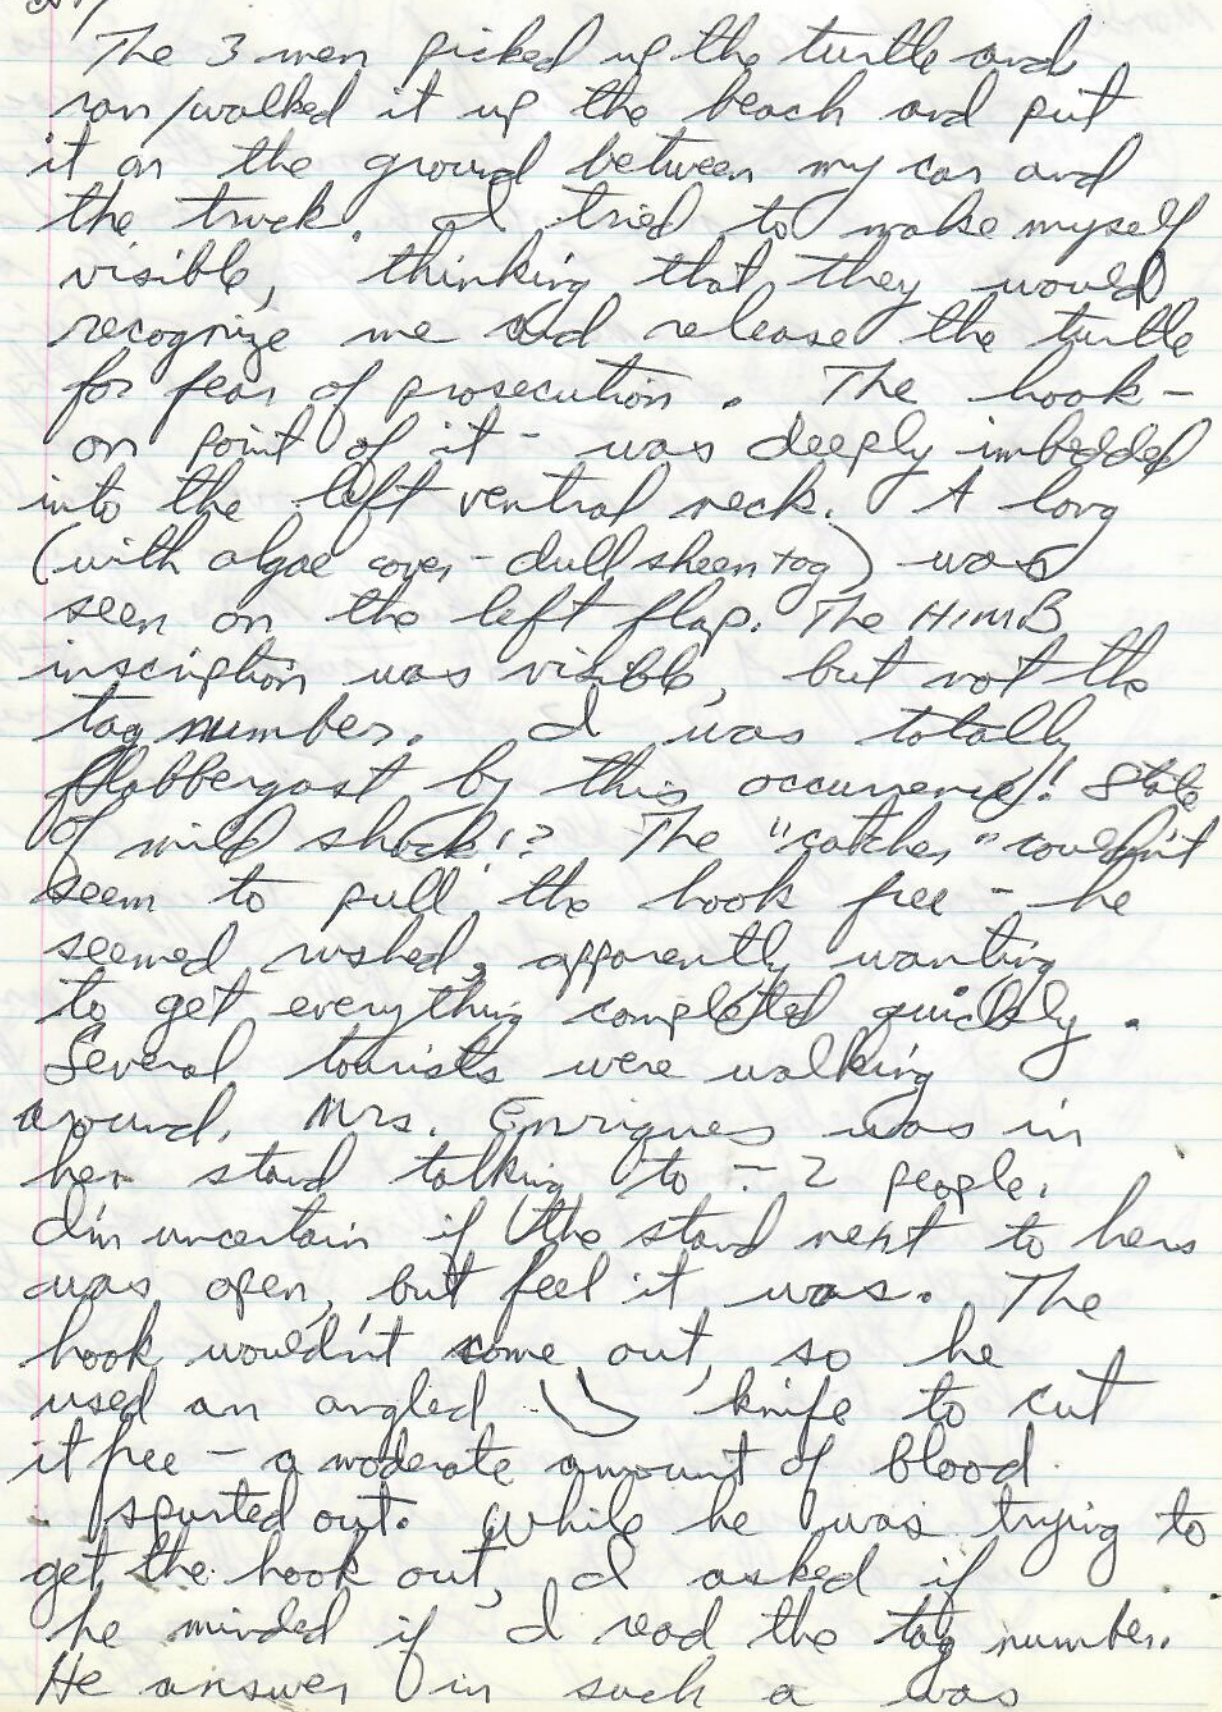 The 3 men picked up the turtle and
ran/walked it up the beach and put
it on the ground between my car and
the truck. I tried to make myself
visible, thinking that they would
recognize me and release the turtle
for fear of prosecution. The hook -
on point of it - was deeply imbedded
into the left ventral neck. A long
(with algae cover - dull sheen tag) was
seen on the left flap. The HIMB
inscription was visible, but not the
tag number. I was totally
flabbergast by this occurrence! State
of mild shock!? The "catcher" couldn't
seem to pull the hook free - he
seemed rushed, apparently wanting
to get everything completed quickly.
Several tourists were walking
around. Mrs. Enriques was in
her stand talking to ~ 2 people.
I'm uncertain if the stand next to hers
was open, but feel it was. The
hook wouldn't come out, so he
used an angled knife to cut
it free - a moderate amount of blood
spurted out. While he was trying to
get the hook out, I asked if
he minded if I read the tag number.
He answer in such a was